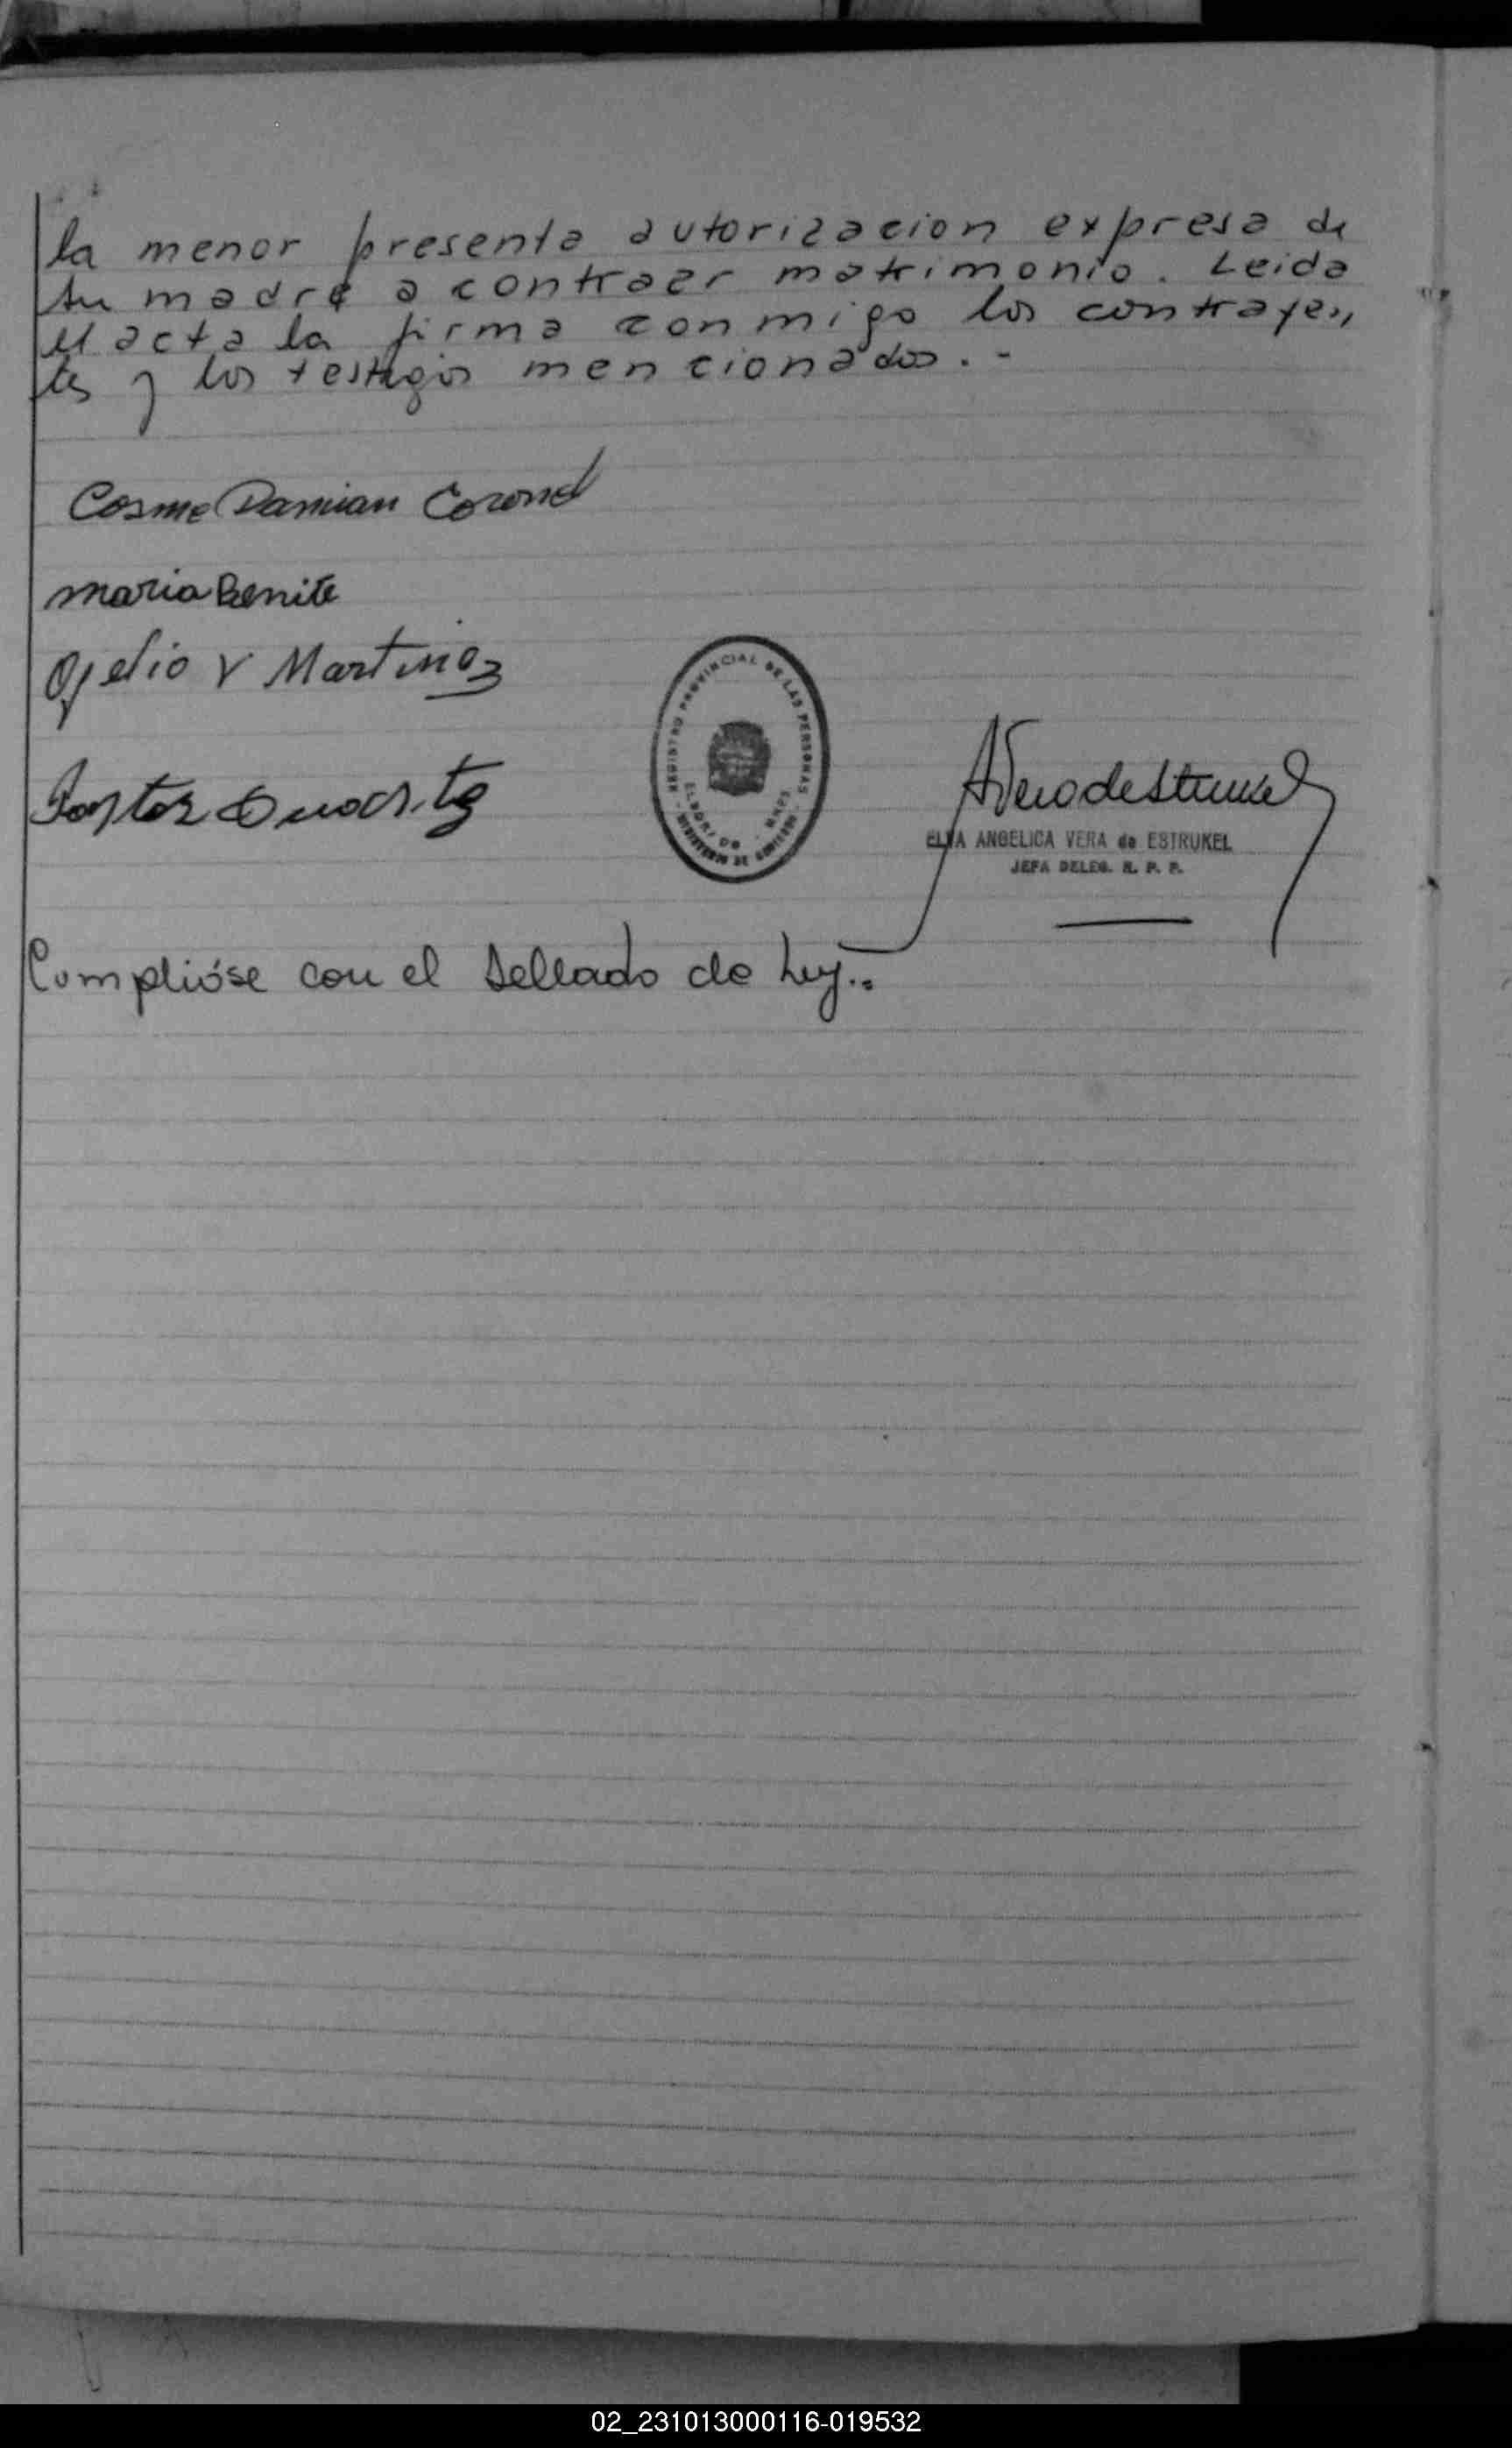 la menor presenta autorizacion expresa de
su madre a contraer matrimonio. Leida
el acta la firma conmigo los contrayen,,
tes y los testigos mencionados.-
Cosme Damian Coronel
maria Benite
Ofelio V Martinez
REGISTRO PROVINCIAL DE LAS PERSONAS
ELDORADO - MNES.
MINISTERIO DE GOBIERNO
AVera de Estrukel
ELVA ANGELICA VERA de ESTRUKEL
JEFA DELEG. R. P. P.
Complióse con el Sellado de Ley.-
02_231013000116-019532